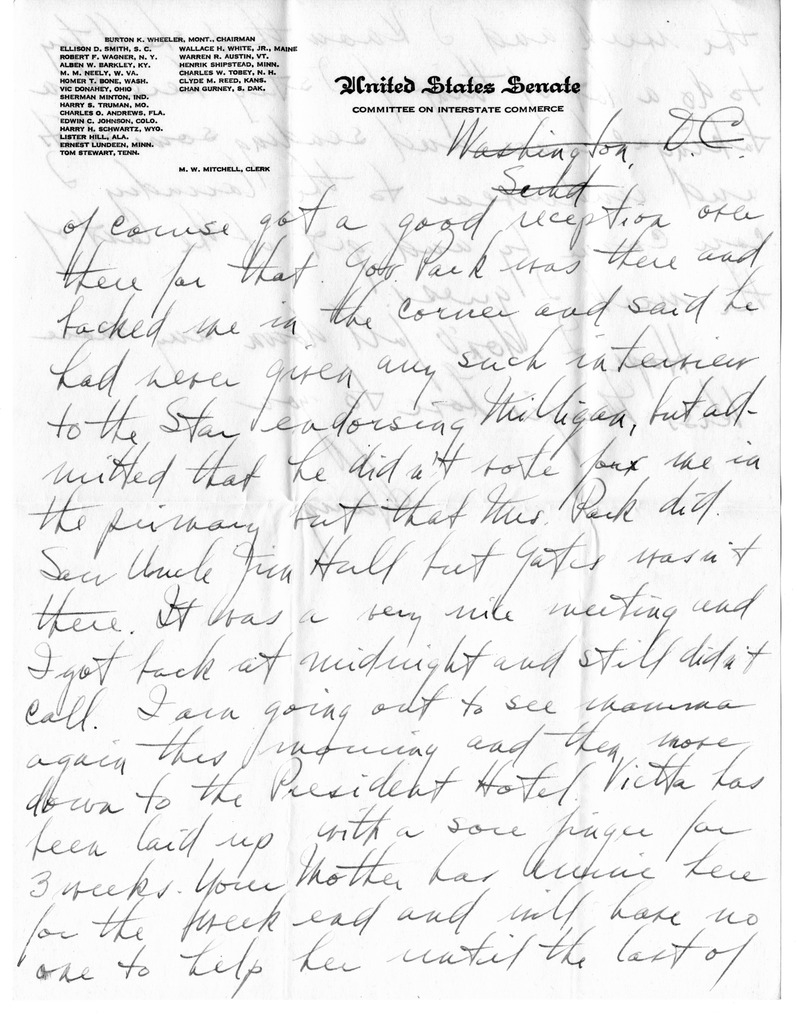 BURTON K. WHEELER, MONT., CHAIRMAN
ELLISON D. SMITH, S. C.
ROBERT F. WAGNER, N. Y.
ALBEN W. BARKLEY, KY.
M. M. NEELY, W. VA.
HOMER T. BONE, WASH.
VIC DONAHEY, OHIO
SHERMAN MINTON, IND.
HARRY S. TRUMAN, MO.
CHARLES O. ANDREWS, FLA.
EDWIN C. JOHNSON, COLO.
HARRY H. SCHWARTZ, WYO.
LISTER HILL, ALA.
ERNEST LUNDEEN, MINN.
TOM STEWART, TENN.
WALLACE H. WHITE, JR., MAINE
WARREN R. AUSTIN, VT.
HENRIK SHIPSTEAD, MINN.
CHARLES W. TOBEY, N. H.
CLYDE M. REED, KANS.
CHAN GURNEY, S. DAK.
M. W. MITCHELL, CLERK
United States Senate
COMMITTEE ON INTERSTATE COMMERCE
Washington, D.C.
of course got a good reception over
there for that. Gov. Park was there and
backed me in the corner and said he
had never given any such interview
to the Star endorsing Milligan, but ad-
mitted that he didn't vote for me in
the primary but that Mrs. Park did.
Saw Uncle Jim Hall but Gates wasn't
there. It was a very nice meeting and
I got back at midnight and still didn't
call. I am going out to see mamma
again this morning and then move
down to the President Hotel. Vietta has
been laid up with a sore finger for
3 weeks. Your Mother has here
for the week end and will have no
one to help her until the last of